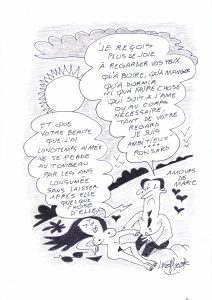 JE REÇOIS
PLUS DE JOIE
À REGARDER VOS YEUX
QU'À BOIRE, QU'À MANGER
QU'À DORMIR
NI QU'À FAIRE CHOSE
QUI SOIT À L'ÂME
OU AU CORPS
NÉCESSAIRE,
TANT DE VOTRE
REGARD
JE SUIS
AMBITIEUX
RONSARD
ET QUE
VOTRE BEAUTÉ
QUE J'AI
LONGTEMPS AIMÉE
NE SE PERDE
AU TOMBEAU
PAR LES ANS
CONSUMÉE
SANS LAISSER
APRÈS ELLE
QUELQUE
CHOSE
D'ELLE
AMOURS
DE MARIE